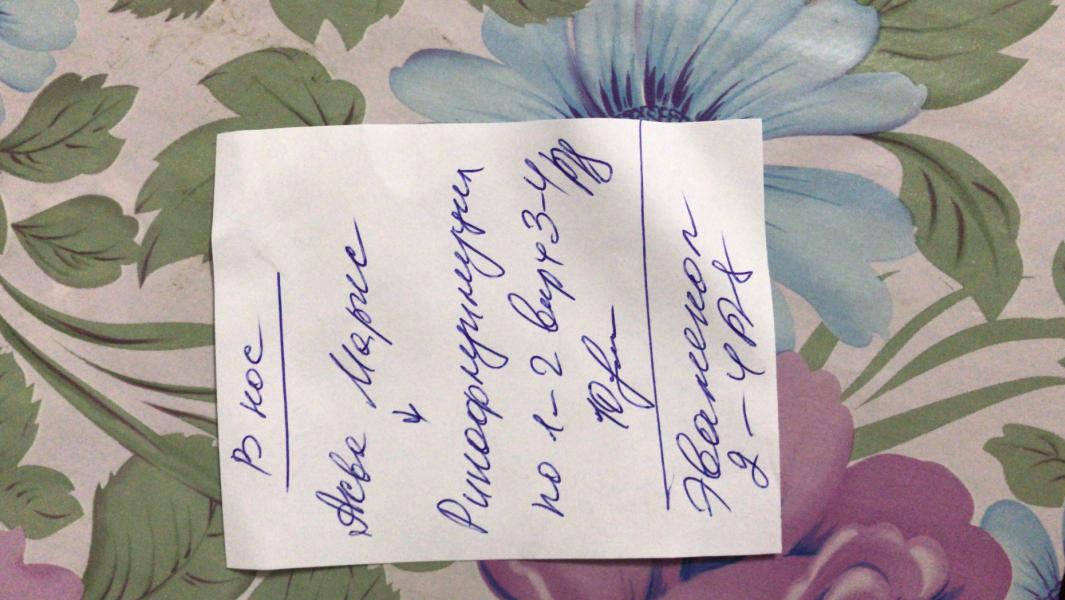 В нос
Аква Марис
↓
Ринофлуимуцил
по 1-2 впр х 3-4 р/д
10 дн
Эваменол
2-4 р/д